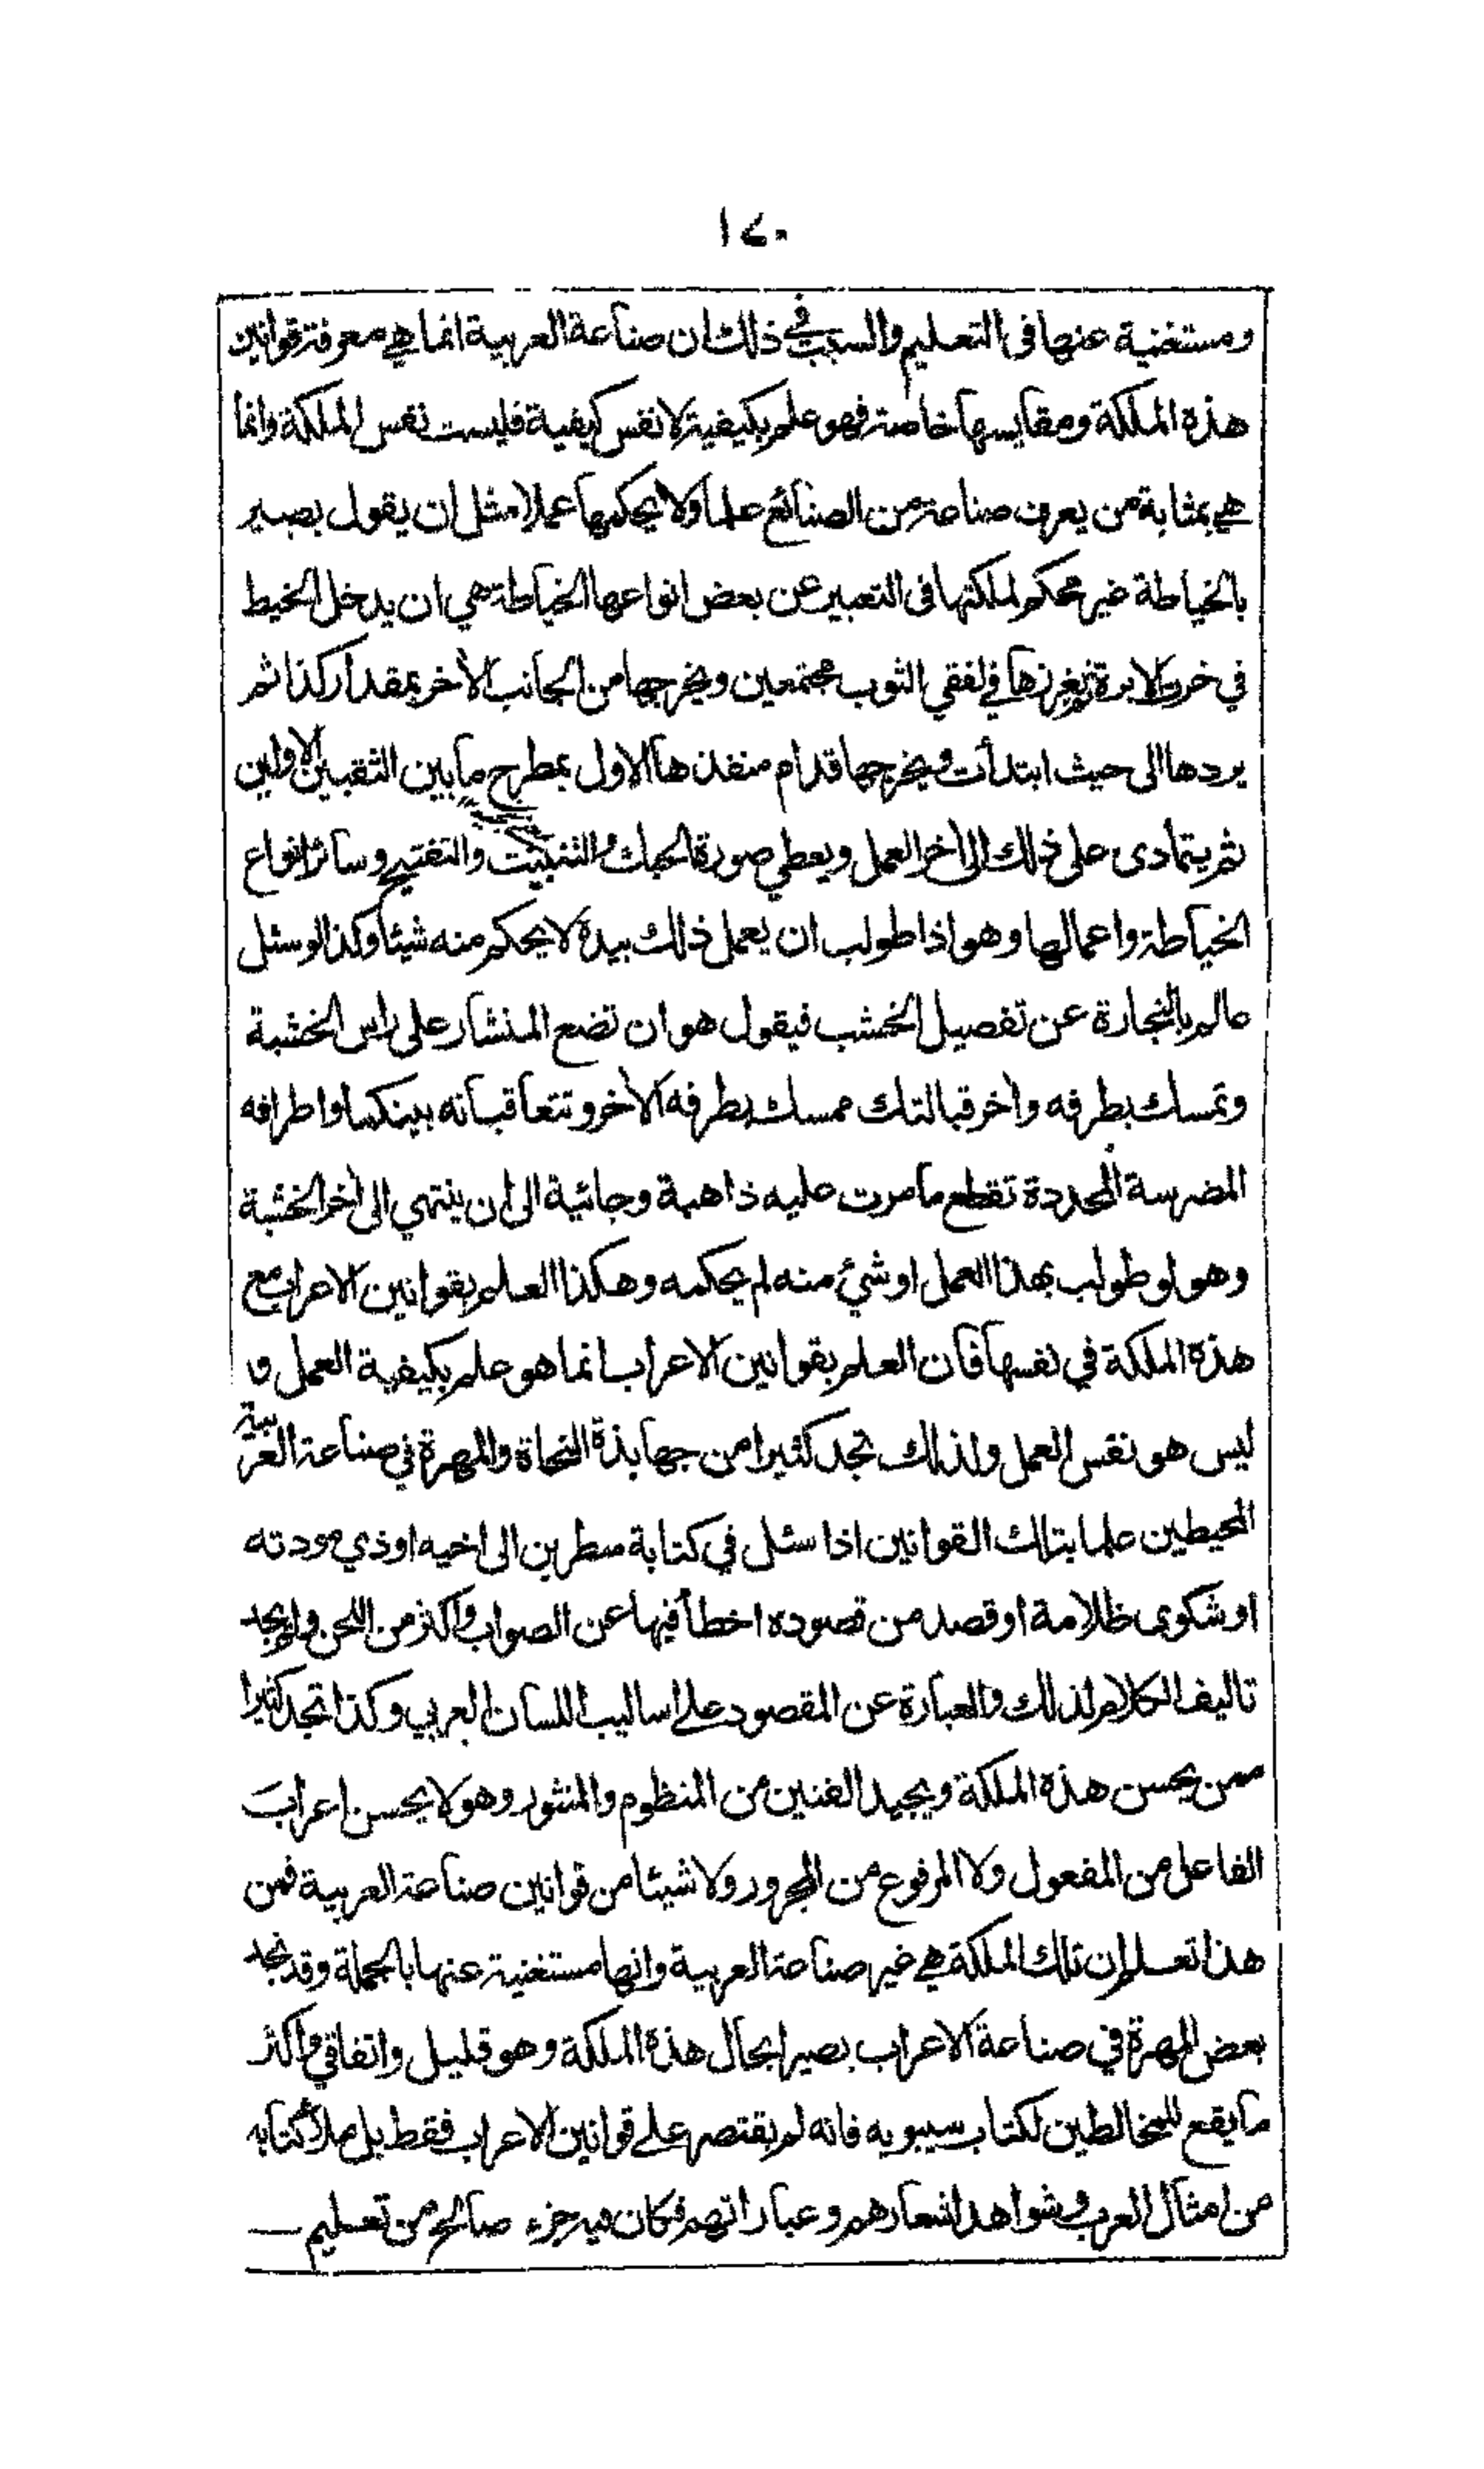 ١٧٠
ومستغنية عنها في التعليم والسبب في ذلك ان صناعة العربية انما هي معرفة قوانين
هذه الملكة ومقايسها خاصة فهو علم بكيفية لا نفس كيفية فليست نفس الملكة وانما
هي بمثابة من يعرف صناعة من الصنائع علما ولا يحكمها عملا مثل ان يقول بصير
بالخياطة غير محكم لملكتها في التعبير عن بعض انواعها الخياطة هي ان يدخل الخيط
في خرت الابرة ثم يغرزها في لفقي الثوب مجتمعين ويخرجها من الجانب الآخر بمقدار كذا ثم
يردها الى حيث ابتدأت ويخرجها قدام منفذها الاول بمطرح ما بين الثقبين الاولين
ثم يتمادى على ذلك الى آخر العمل ويعطي صورة الحبك والتنبيت والتفتيح وسائر انواع
الخياطة واعمالها وهو اذا طولب ان يعمل ذلك بيده لا يحكم منه شيئا وكذا لو سئل
عالم بالنجارة عن تفصيل الخشب فيقول هو ان تضع المنشار على راس الخشبة
وتمسك بطرفه وآخر قبالتك ممسك بطرفه الآخر وتتعاقبانه بينكما واطرافه
المضرسة المحددة تقطع ما مرت عليه ذاهبة وجائية الى ان ينتهي الى آخر الخشبة
وهو لو طولب بهذا العمل او شيء منه لم يحكمه وهكذا العلم بقوانين الاعراب مع
هذه الملكة في نفسها فان العلم بقوانين الاعراب انما هو علم بكيفية العمل و
ليس هو نفس العمل ولذلك نجد كثيرا من جهابذة النحاة والمهرة في صناعة العربية
المحيطين علما بتلك القوانين اذا سئل في كتابة سطرين الى اخيه او ذي مودته
او شكوى ظلامة او قصد من قصوده اخطأ فيها عن الصواب واكثر من اللحن ولم يجد
تاليف الكلام لذلك والعبارة عن المقصود على اساليب اللسان العربي وكذا تجد كثيرا
ممن يحسن هذه الملكة ويجيد الفنين من المنظوم والمنثور وهو لا يحسن اعراب
الفاعل من المفعول ولا المرفوع من المجرور ولا شيئا من قوانين صناعة العربية فمن
هذا تعلم ان تلك الملكة هي غير صناعة العربية وانها مستغنية عنها بالجملة وقد نجد
بعض المهرة في صناعة الاعراب بصيرا بحال هذه الملكة وهو قليل واتفاقي واكثر
ما يقع للمخالطين لكتاب سيبويه فانه لم يقتصر على قوانين الاعراب فقط بل ملأ كتابه
من امثال العرب وشواهد اشعارهم وعباراتهم فكان فيه جزء صالح من تعليم